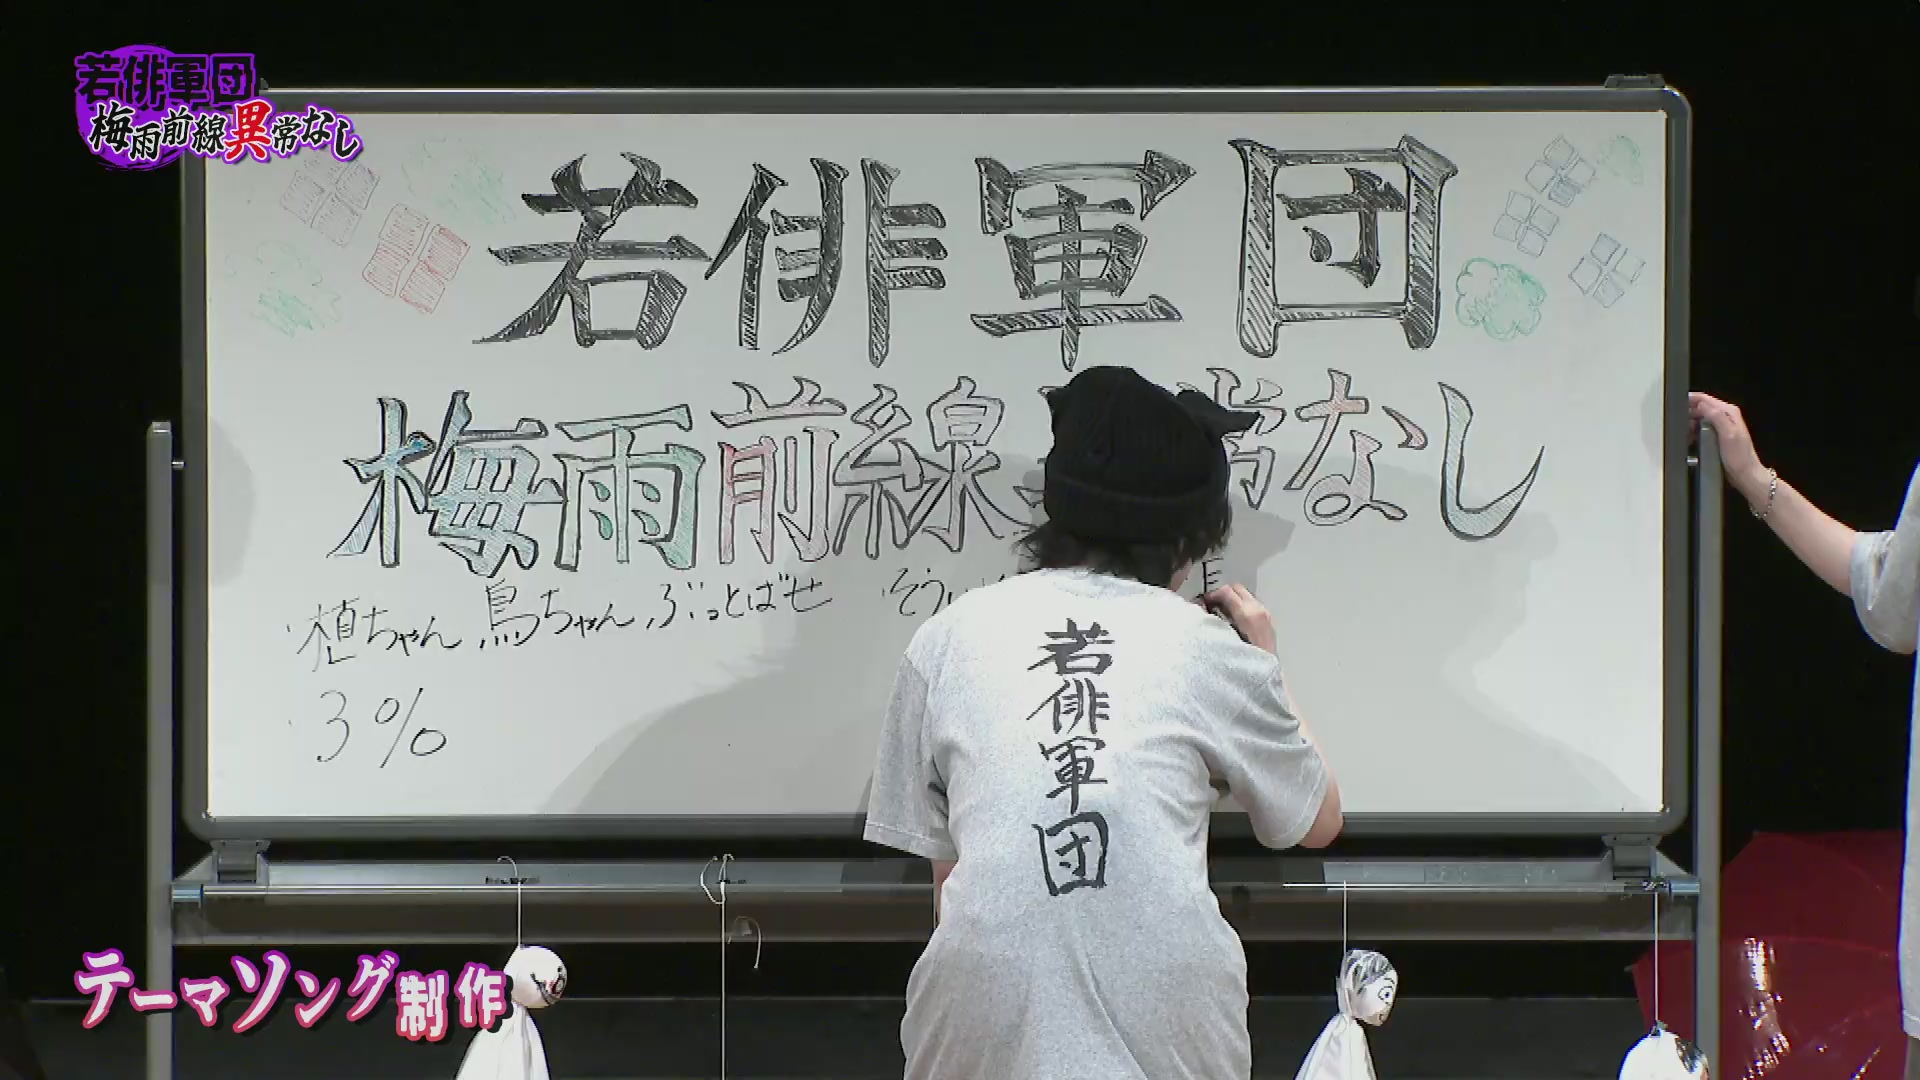 若俳軍団
梅雨前線異常なし
若俳軍団
梅雨前線 常なし
植ちゃん、鳥ちゃん、ぶっとばせ そう
3%
若俳軍団
テーマソング制作